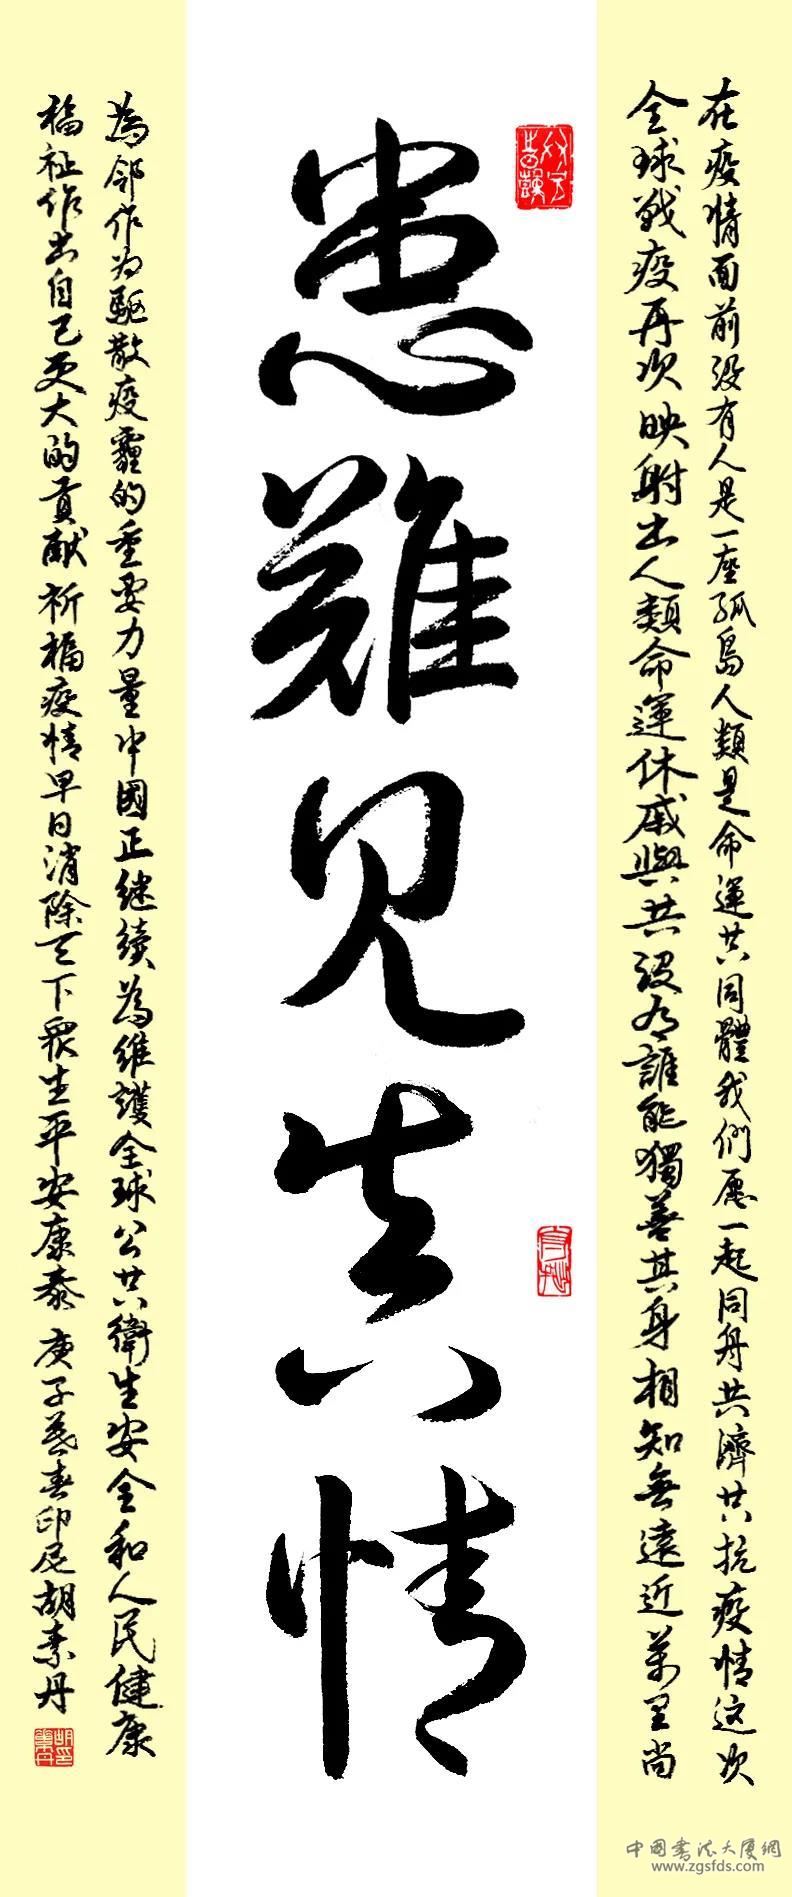 在疫情面前没有人是一座孤島人類是命運共同體我們愿一起同舟共濟共抗疫情这次
全球战疫再次映射出人類命運休戚與共没有誰能獨善其身相知無遠近萬里尚
患難見真情
為邻作为驱散疫霾的重要力量中國正继續為維護全球公共衛生安全和人民健康
福祉作出自己更大的貢献祈福疫情早日消除天下眾生平安康泰 庚子暮春印尼胡素丹
中國書法大廈網
www.zgsfds.com